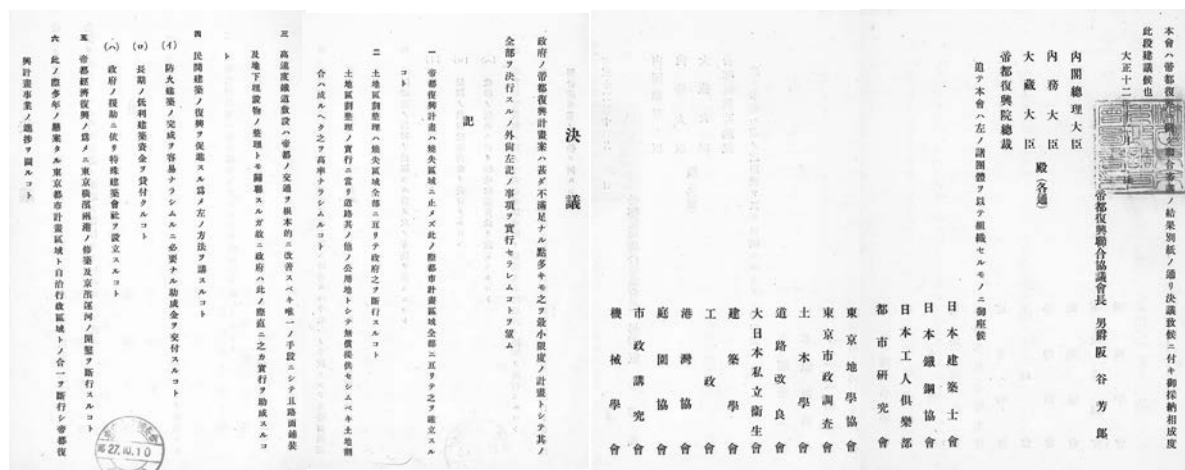 本會ハ帝都復興ニ關スル聯合協議ノ結果別紙ノ通リ決議致候ニ付キ御採納相成度
此段建議候也
大正十二年 月 日
帝都復興聯合協議會長 男爵 阪谷芳郎
內閣總理大臣
內務大臣
大藏大臣
帝都復興院總裁
殿(各通)
追テ本會ハ左ノ諸團體ヲ以テ組織セルモノニ御座候
日本建築士會
日本鐵鋼協會
日本工人俱樂部
都市硏究會
東京地學協會
東京市政調査會
土木學會
道路改良會
大日本私立衞生會
建築學會
工政會
港灣協會
庭園協會
市政講究會
機械學會
決議
政府ノ帝都復興計畫案ハ甚ダ不滿足ナル點多キモ之ヲ最小限度ノ計畫トシテ其ノ
全部ヲ決行スルノ外尙左記ノ事項ヲ實行セラレムコトヲ望ム
記
一 帝都復興計畫ハ燒失區域ニ止メズ此ノ際都市計畫區域全部ニ亙リテ之ヲ確立スル
コト
二 土地區劃整理ハ燒失區域全部ニ亙リテ政府之ヲ斷行スルコト
土地區劃整理ノ實行ニ當リ道路其ノ他ノ公用地トシテ無償提供セシムベキ土地割
合ハ成ルヘク之ヲ高率ナラシムルコト
三 高速度鐵道敷設ハ帝都ノ交通ヲ根本的ニ改善スベキ唯一ノ手段ニシテ且路面鋪裝
及地下埋設物ノ整理トモ關聯スルガ故ニ政府ハ此ノ際直ニ之カ實行ヲ助成スルコ
ト
四 民間建築ノ復興ヲ促進スル爲メ左ノ方法ヲ講スルコト
(イ) 防火建築ノ完成ヲ容易ナラシムルニ必要ナル助成金ヲ交付スルコト
(ロ) 長期ノ低利建築資金ヲ貸付クルコト
(ハ) 政府ノ援助ニ依リ特殊建築會社ヲ設立スルコト
五 帝都經濟復興ノ爲メニ東京橫濱兩港ノ修築及京濱運河ノ開鑿ヲ斷行スルコト
六 此ノ際多年ノ懸案タル東京都市計畫區域ト自治行政區域トノ合一ヲ斷行シ帝都復
興計畫事業ノ進捗ヲ圖ルコト
27.10.10